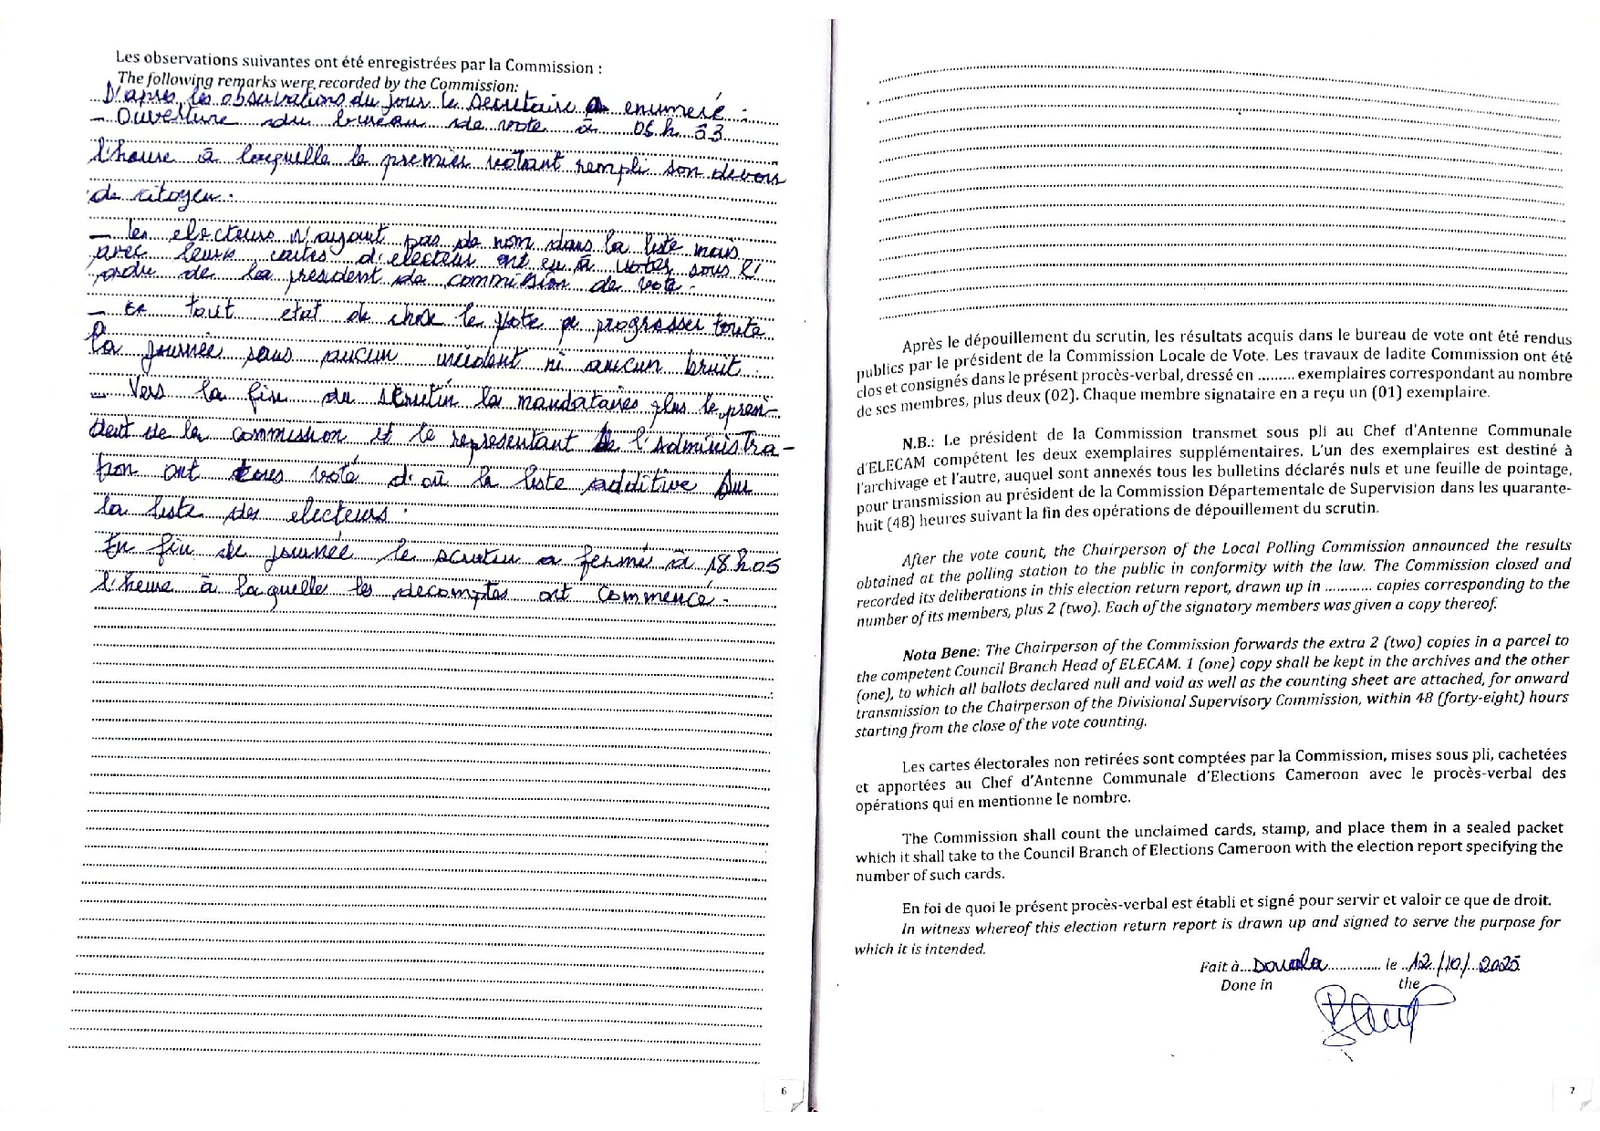 Les observations suivantes ont été enregistrées par la Commission :
The following remarks were recorded by the Commission:
D'après les observations du jour le secretaire a enumeré :
- Ouverture du bureau de vote à 08 h 33
l'heure à laquelle le premier votant rempli son devoir
de citoyen.
- les electeurs n'ayant pas de nom dans la liste mais
avec leurs cartes d'electeur ont eu à voter sous l'
ordre de la president de commission de vote.
- en tout etat de chose le vote a progresser toute
la journée sans aucun incident ni aucun bruit.
- Vers la fin du scrutin les mandataires plus le presi-
dent de la commission et le representant de l'administra-
tion ont tous voté d'où la liste additive sur
la liste des electeurs.
En fin de journée le scrutin a fermé à 18h05
l'heure à laquelle les decomptes ont commencé.
6
Après le dépouillement du scrutin, les résultats acquis dans le bureau de vote ont été rendus
publics par le président de la Commission Locale de Vote. Les travaux de ladite Commission ont été
clos et consignés dans le présent procès-verbal, dressé en ......... exemplaires correspondant au nombre
de ses membres, plus deux (02). Chaque membre signataire en a reçu un (01) exemplaire.
N.B.: Le président de la Commission transmet sous pli au Chef d'Antenne Communale
d'ELECAM compétent les deux exemplaires supplémentaires. L'un des exemplaires est destiné à
l'archivage et l'autre, auquel sont annexés tous les bulletins déclarés nuls et une feuille de pointage,
pour transmission au président de la Commission Départementale de Supervision dans les quarante-
huit (48) heures suivant la fin des opérations de dépouillement du scrutin.
After the vote count, the Chairperson of the Local Polling Commission announced the results
obtained at the polling station to the public in conformity with the law. The Commission closed and
recorded its deliberations in this election return report, drawn up in ............ copies corresponding to the
number of its members, plus 2 (two). Each of the signatory members was given a copy thereof.
Nota Bene: The Chairperson of the Commission forwards the extra 2 (two) copies in a parcel to
the competent Council Branch Head of ELECAM. 1 (one) copy shall be kept in the archives and the other
(one), to which all ballots declared null and void as well as the counting sheet are attached, for onward
transmission to the Chairperson of the Divisional Supervisory Commission, within 48 (forty-eight) hours
starting from the close of the vote counting.
Les cartes électorales non retirées sont comptées par la Commission, mises sous pli, cachetées
et apportées au Chef d'Antenne Communale d'Elections Cameroon avec le procès-verbal des
opérations qui en mentionne le nombre.
The Commission shall count the unclaimed cards, stamp, and place them in a sealed packet
which it shall take to the Council Branch of Elections Cameroon with the election report specifying the
number of such cards.
En foi de quoi le présent procès-verbal est établi et signé pour servir et valoir ce que de droit.
In witness whereof this election return report is drawn up and signed to serve the purpose for
which it is intended.
Fait à...Douala............ le ..12/10/2025
Done in the
7